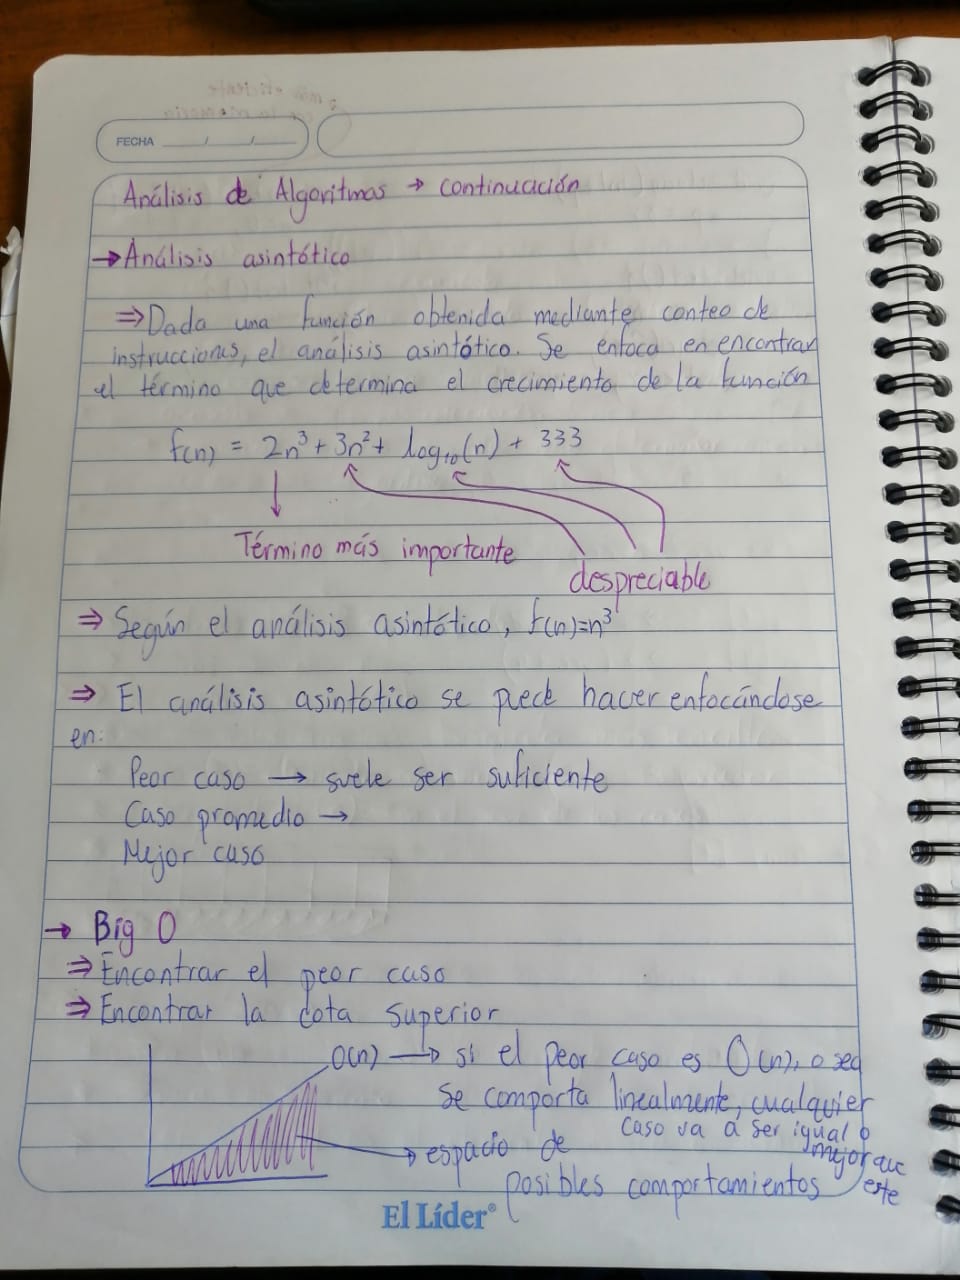 FECHA / /
Análisis de Algoritmos → continuación
→ Análisis asintótico
⇒ Dada una función obtenida mediante conteo de
instrucciones, el análisis asintótico. Se enfoca en encontrar
el término que determina el crecimiento de la función
f(n) = 2n³ + 3n² + log₁₀(n) + 333
Término más importante
despreciable
⇒ Según el análisis asintótico, f(n)=n³
⇒ El análisis asintótico se puede hacer enfocándose
en:
Peor caso → suele ser suficiente
Caso promedio →
Mejor caso
→ Big O
⇒ Encontrar el peor caso
⇒ Encontrar la cota superior
O(n) → si el peor caso es O(n), o sea
se comporta linealmente, cualquier
caso va a ser igual o
mejor que
este
→ espacio de
posibles comportamientos
El Líder®